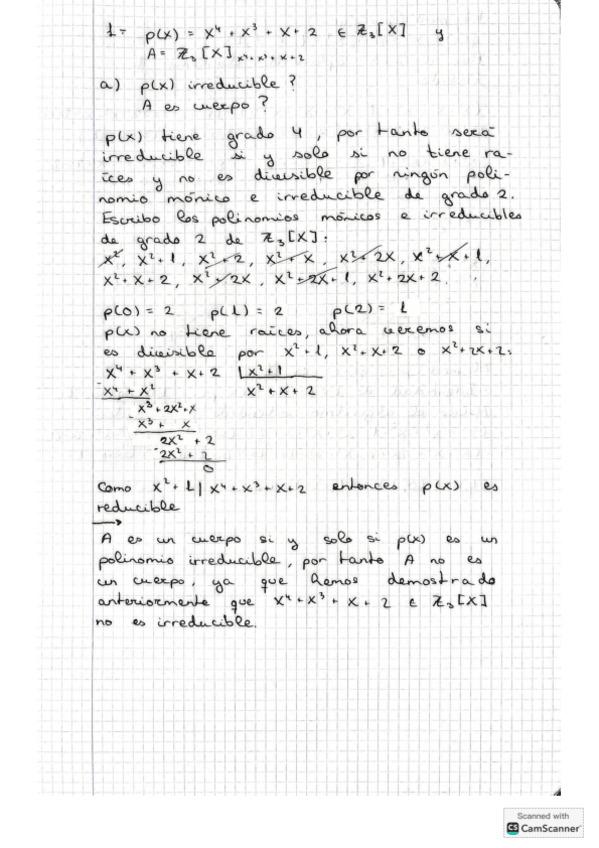 1= p(x) = x⁴ + x³ + x + 2 ∈ Z₃[x] y
A = Z₃[x] x⁴+x³+x+2
a) p(x) irreducible?
A es cuerpo?
p(x) tiene grado 4, por tanto será
irreducible si y solo si no tiene ra-
íces y no es divisible por ningún poli-
nomio mónico e irreducible de grado 2.
Escribo los polinomios mónicos e irreducibles
de grado 2 de Z₃[x]:
x², x²+1, x²+2, x²+x, x²+2x, x²+x+1,
x²+x+2, x²+2x, x²+2x+1, x²+2x+2.
p(0) = 2 p(1) = 2 p(2) = 1
p(x) no tiene raíces, ahora veremos si
es divisible por x²+1, x²+x+2 o x²+2x+2:
x⁴ + x³ + x + 2 | x²+1
x⁴ + x² x² + x + 2
x³ + 2x² + x
-x³ + x
2x² + 2
-2x² + 2
0
Como x²+1 | x⁴+x³+x+2 entonces p(x) es
reducible
A es un cuerpo si y solo si p(x) es un
polinomio irreducible, por tanto A no es
un cuerpo, ya que hemos demostrado
anteriormente que x⁴+x³+x+2 ∈ Z₃[x]
no es irreducible.
Scanned with
CS CamScanner